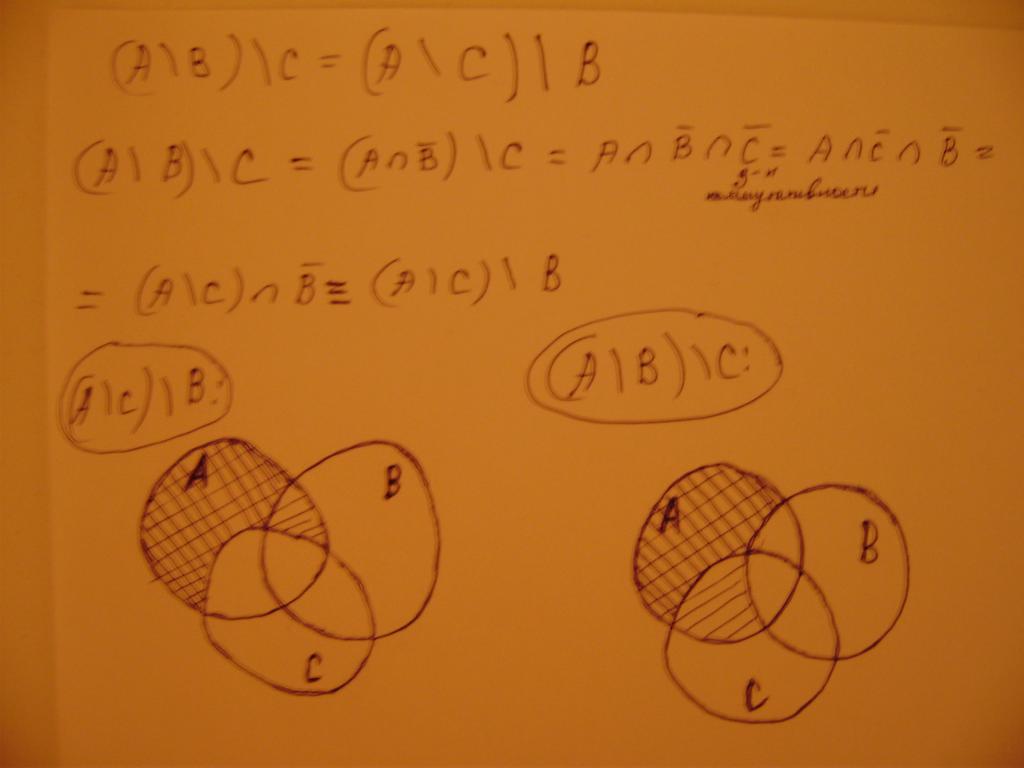 (A \ B) \ C = (A \ C) \ B
(A \ B) \ C = (A ∩ B̄) \ C = A ∩ B̄ ∩ C̄ = A ∩ C̄ ∩ B̄ =
з-н
коммутативности
= (A \ C) ∩ B̄ ≡ (A \ C) \ B
(A \ C) \ B:
(A \ B) \ C:
A
B
C
A
B
C